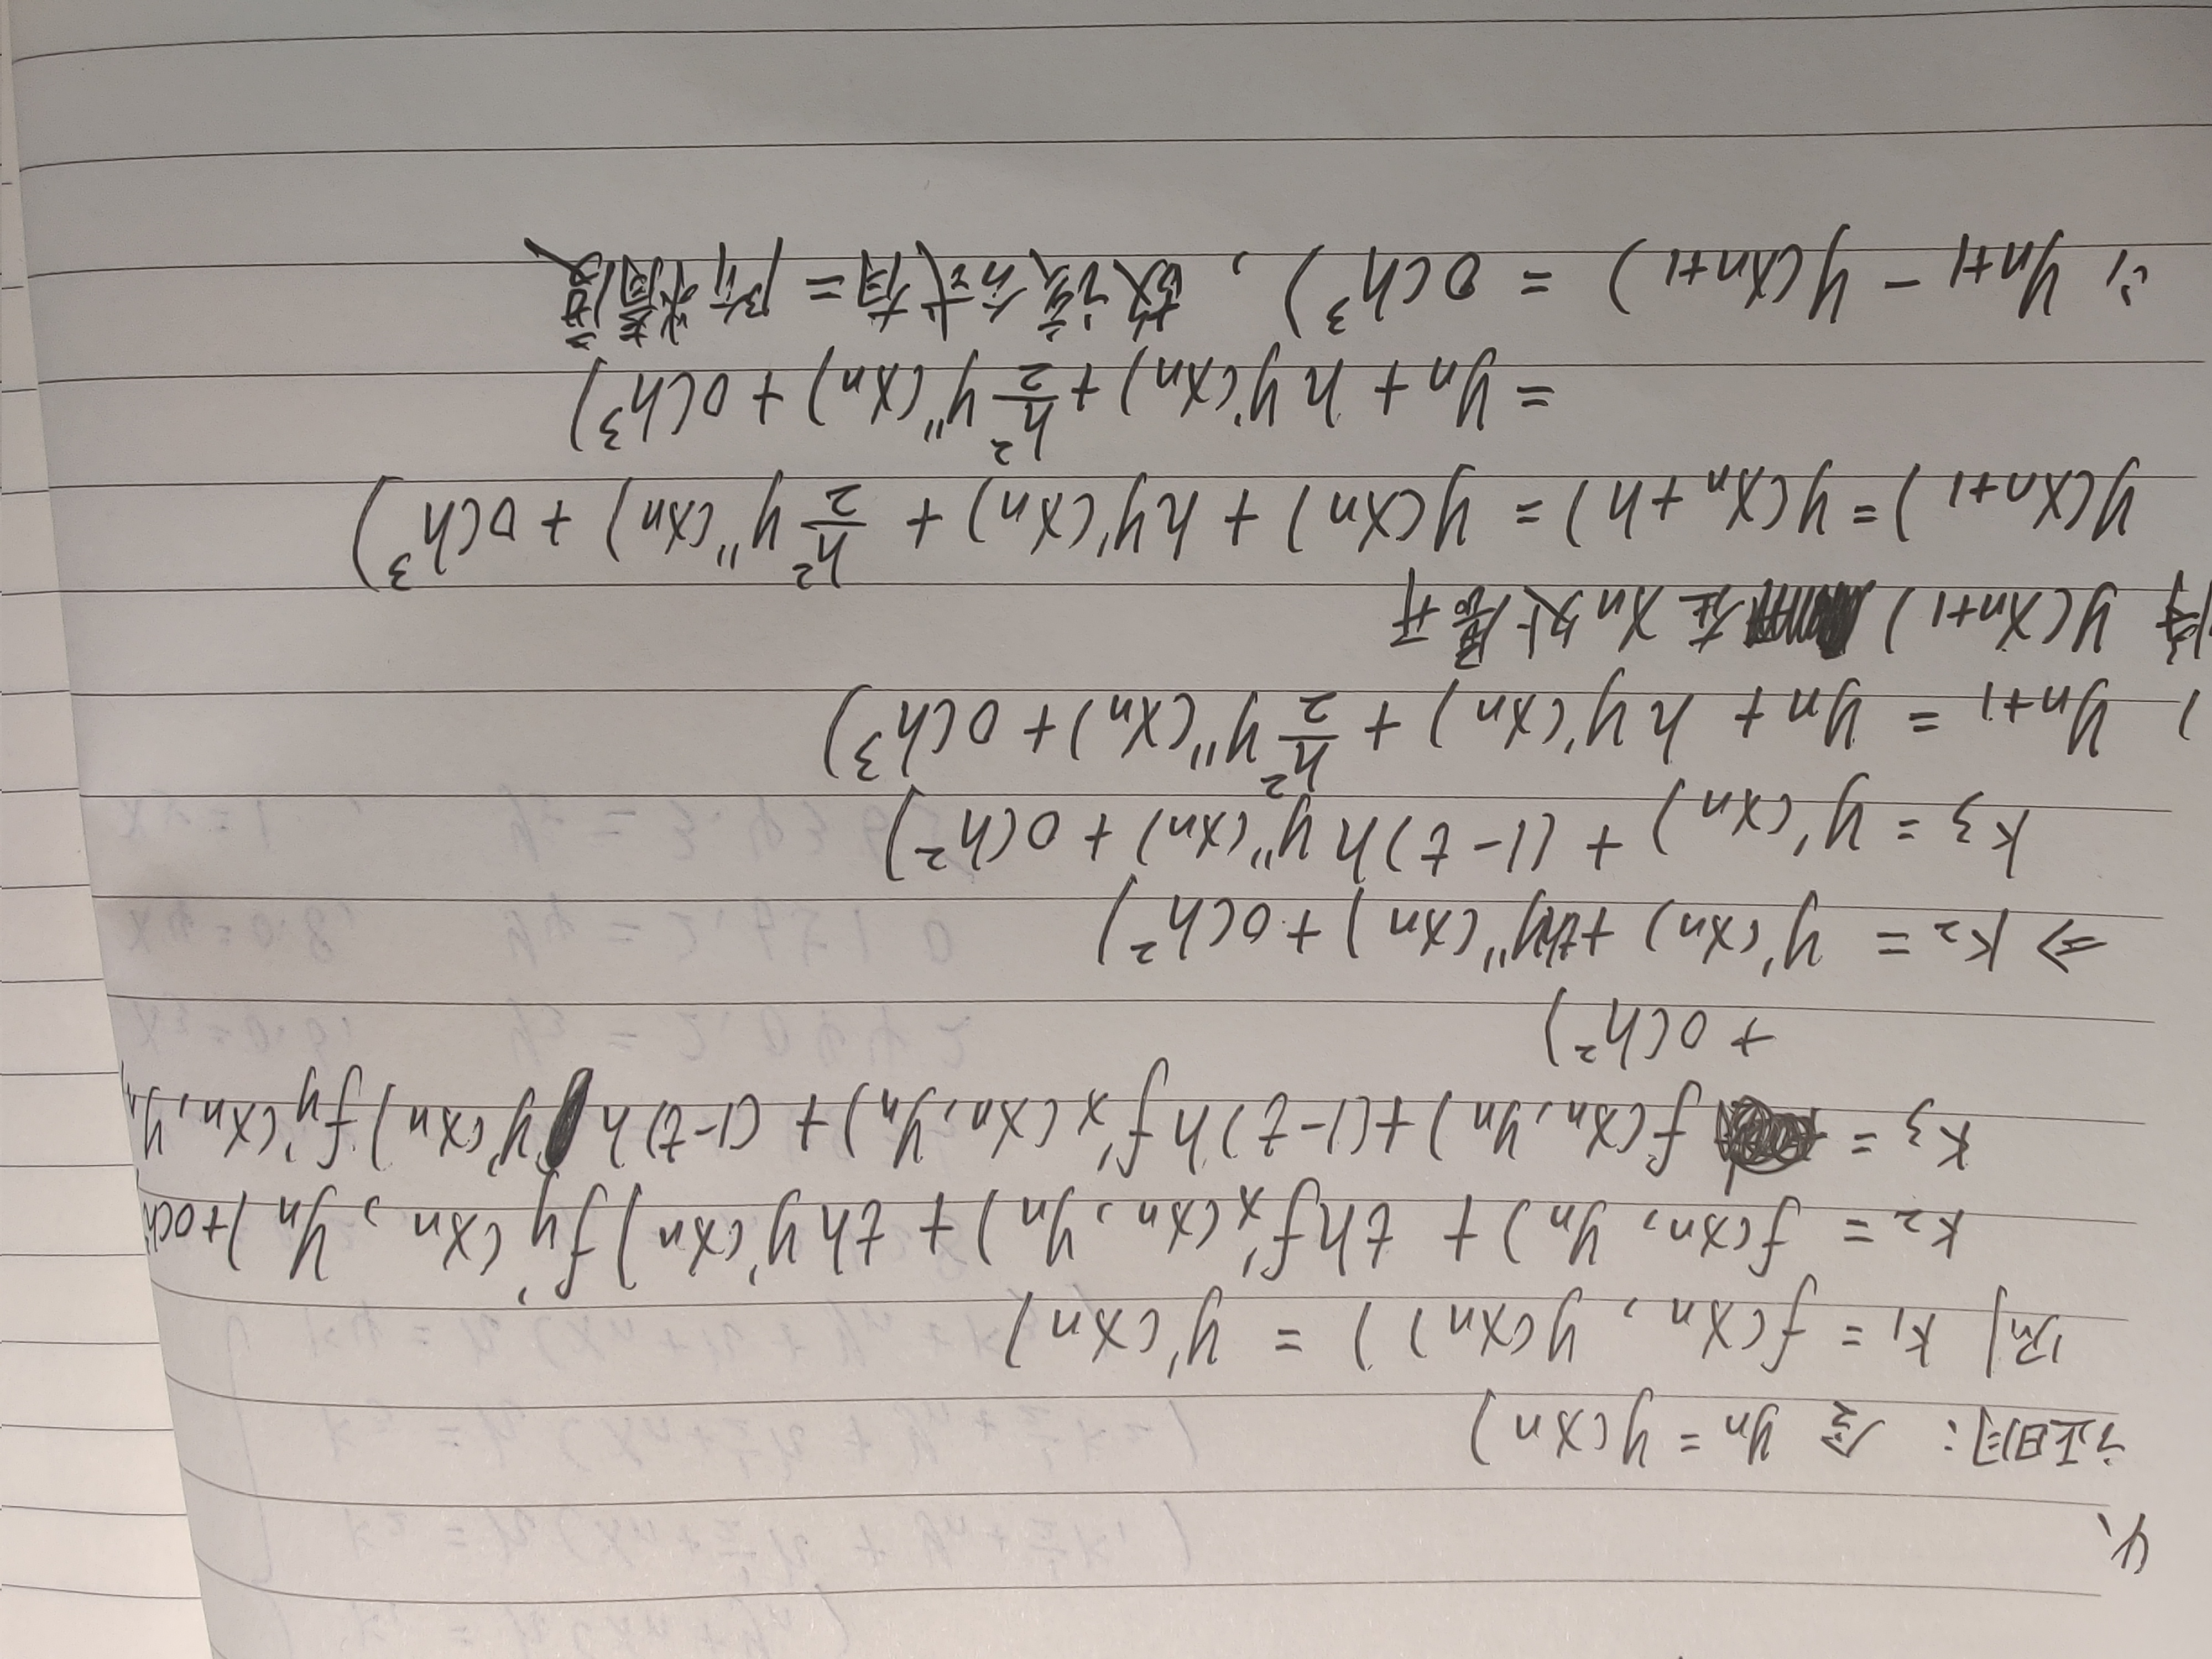 4、
证明：令 yn = y(xn)
则 K1 = f(xn, y(xn)) = y'(xn)
K2 = f(xn, yn) + thf'x(xn, yn) + thy'(xn)fy'(xn, yn)+o(h
K3 = f(xn,yn)+(1-t)hf'x(xn,yn)+(1-t)h y'(xn)fy'(xn,yn
+ o(h²)
⇒ K2 = y'(xn) +thy''(xn) + o(h²)
K3 = y'(xn) + (1-t)h y''(xn) + o(h²)
yn+1 = yn + hy'(xn) + h²/2 y''(xn) + o(h³)
将 y(xn+1) 在 xn 处展开
y(xn+1) = y(xn+h) = y(xn) + hy'(xn) + h²/2 y''(xn) + o(h³)
= yn + hy'(xn) + h²/2 y''(xn) + o(h³)
∴ yn+1 - y(xn+1) = o(h³), 故该公式有二阶精度